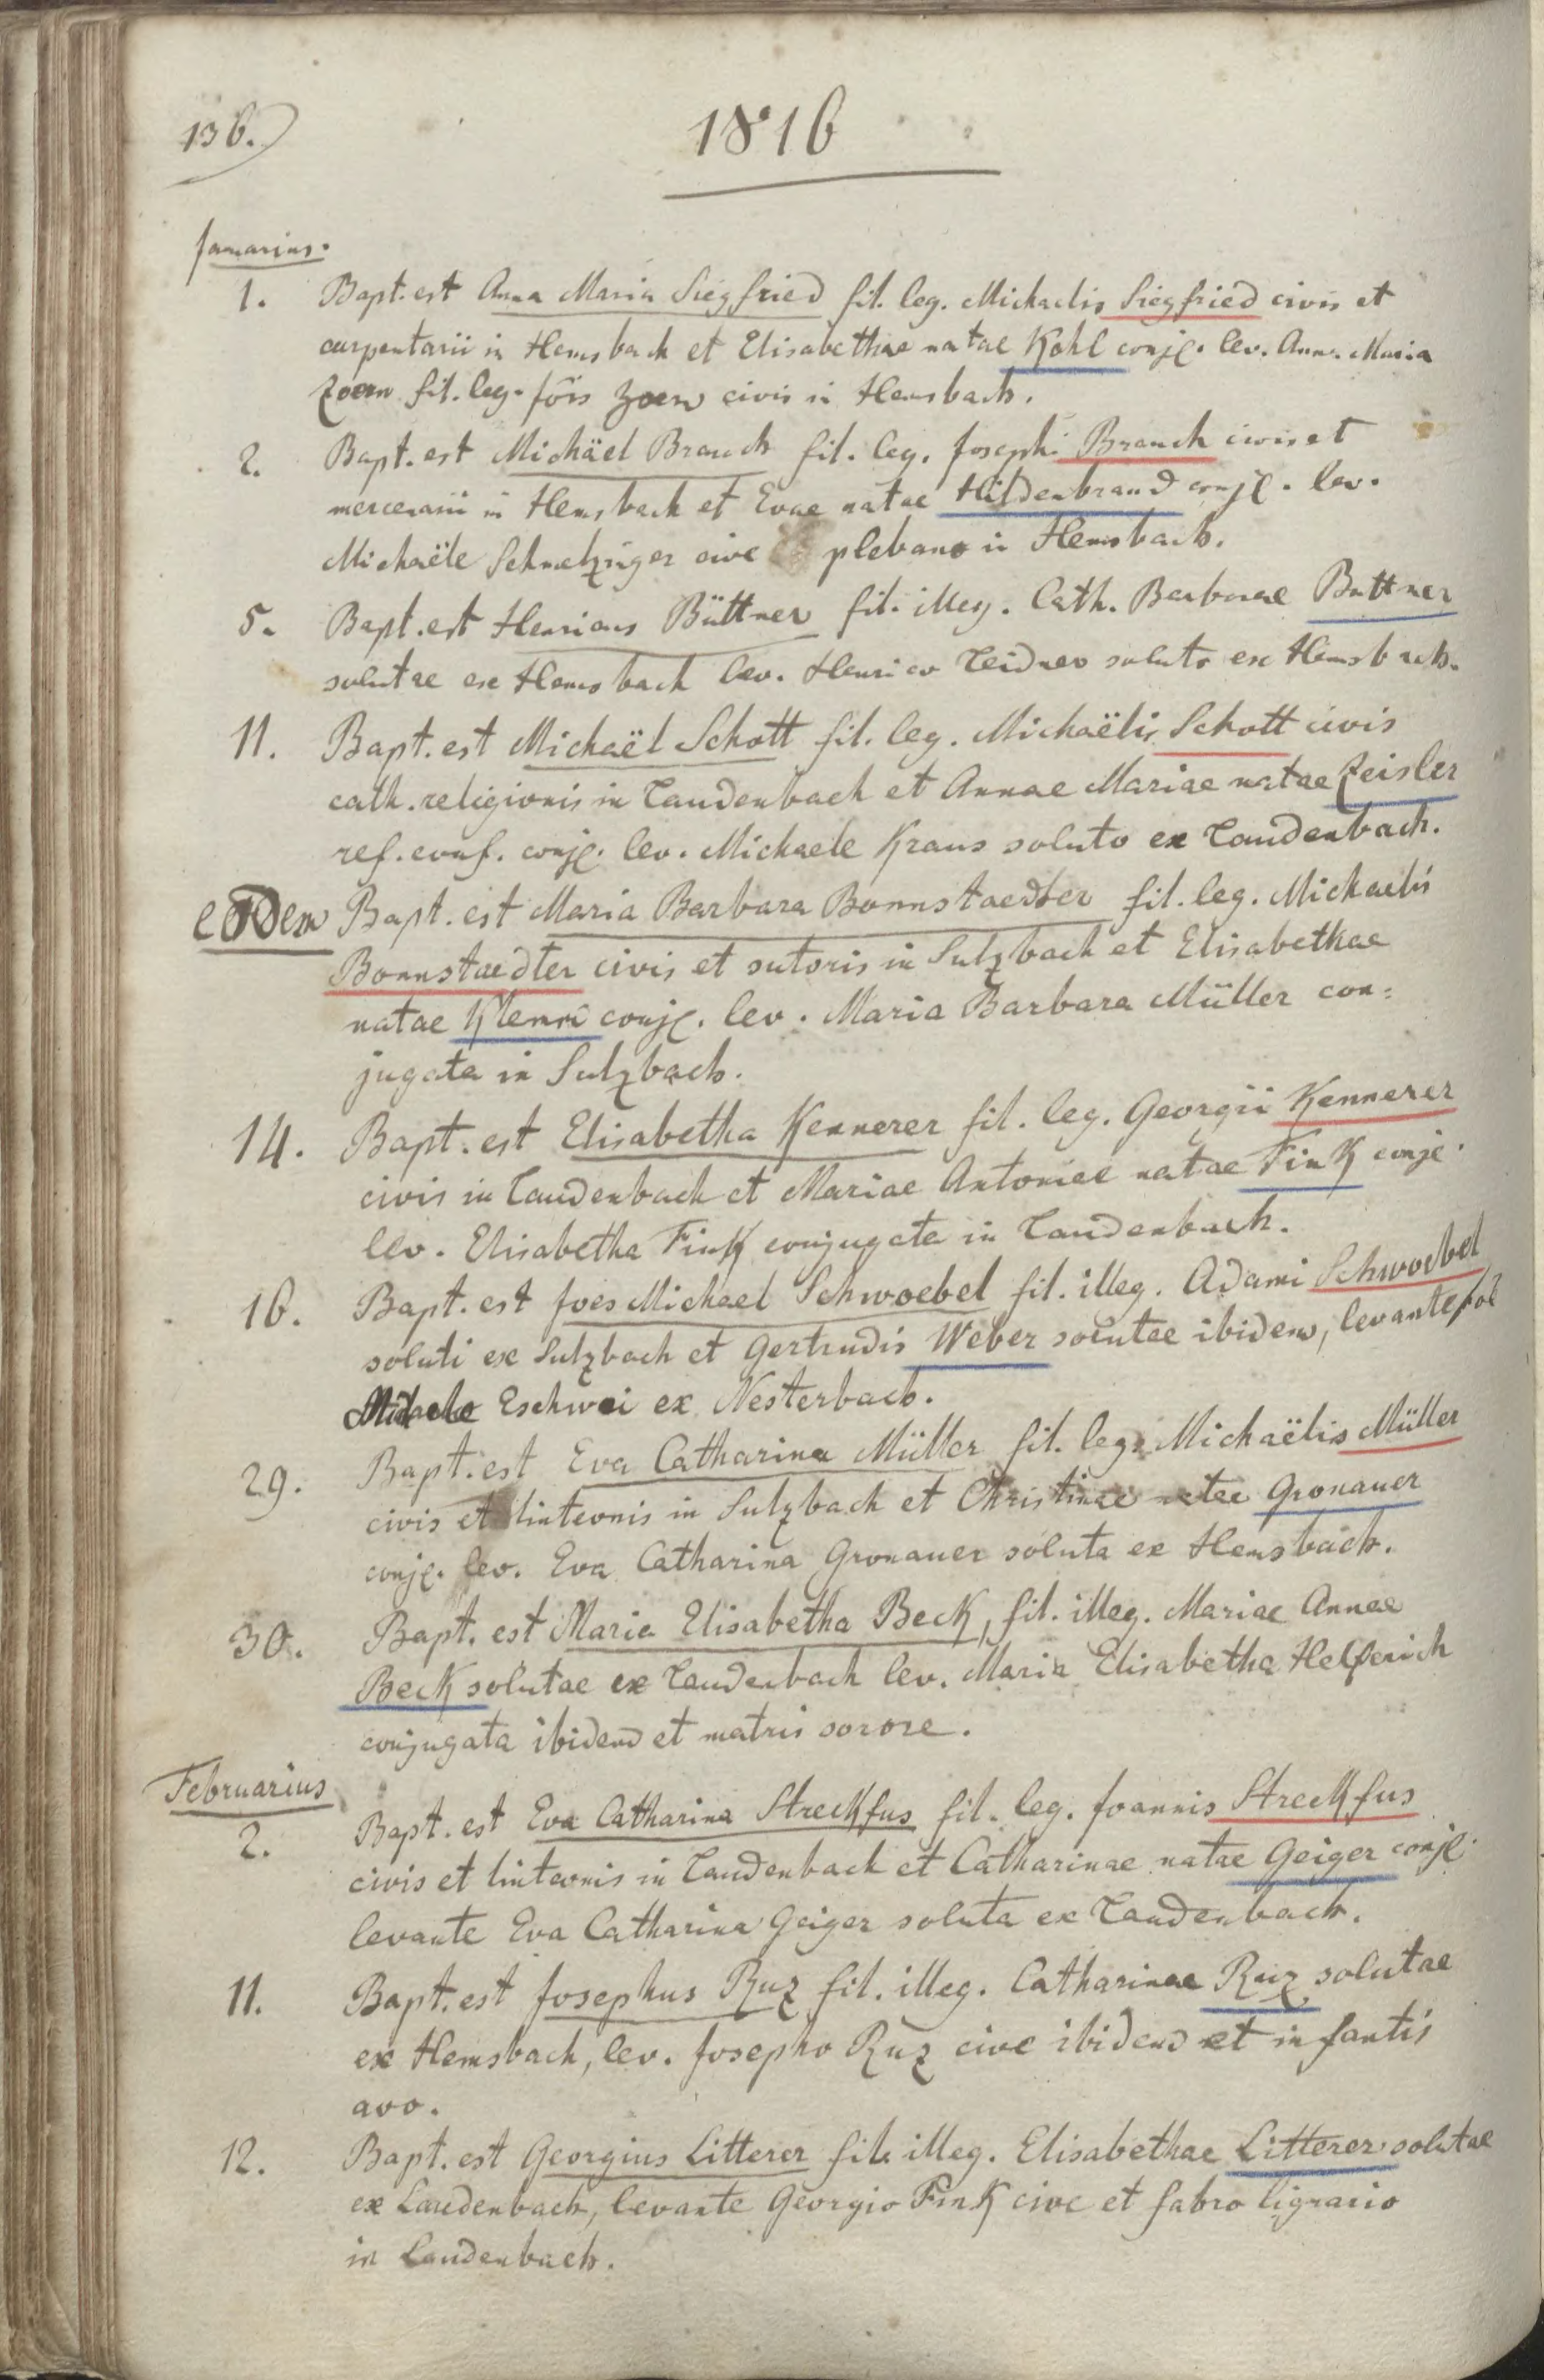 136.
1816
Januarius.
1. Bapt. est Anna Maria Siegfried fil. leg. Michaelis Siegfried civis et
carpentarii in Hemsbach et Elisabethae natae Kohl conjg. lev. Ann. Maria
Zoern fil. leg. Jôis Zoern civis in Hemsbach.
2. Bapt. est Michäel Brauch fil. leg. Josephi Brauch civis et
mercenarii in Hemsbach et Evae natae Hildenbrand conjg. lev.
Michaële cive plebano in Hemsbach.
5. Bapt. est Henricus Büttner fil. illeg. Cath. Barbarae Buttner
solutae ex Hemsbach lev. Henrico Leidner soluto ex Hemsbach.
11. Bapt. est Michaël Schott fil. leg. Michaëlis Schott civis
cath. religionis in Laudenbach et Annae Mariae natae Zeisler
ref. conf. conjg. lev. Michaele Kraus soluto ex Laudenbach.
eodem Bapt. est Maria Barbara Bonnstaedter fil. leg. Michaelis
Bonnstaedter civis et sutoris in Sulzbach et Elisabethae
natae Klemm conjg. lev. Maria Barbara Müller con=
jugata in Sulzbach.
14. Bapt. est Elisabetha Kennerer fil. leg. Georgii Kennerer
civis in Laudenbach et Mariae Antoniae natae Fink conjg.
lev. Elisabetha Fink conjugata in Laudenbach.
16. Bapt. est Joes Michael Schwoebel fil. illeg. Adami Schwoebel
soluti ex Sulzbach et Gertrudis Weber solutae ibidem, levante Joe
Michaele Eschwei ex Nesterbach.
29. Bapt. est Eva Catharina Müller fil. leg. Michaëlis Müller
civis et linteonis in Sulzbach et Christinae natae Gronauer
conjg. lev. Eva Catharina Gronauer soluta ex Hemsbach.
30. Bapt. est Maria Elisabetha Beck, fil. illeg. Mariae Annae
Beck solutae ex Laudenbach lev. Maria Elisabetha Helferich
conjugata ibidem et matris sorore.
Februarius
2. Bapt. est Eva Catharina Streckfus fil. leg. Joannis Streckfus
civis et linteonis in Laudenbach et Catharinae natae Geiger conjg.
levante Eva Catharina Geiger soluta ex Laudenbach.
11. Bapt. est Josephus Ruz fil. illeg. Catharinae Ruz solutae
ex Hemsbach, lev. Josepho Ruz cive ibidem et infantis
avo.
12. Bapt. est Georgius Litterer fil. illeg. Elisabethae Litterer solutae
ex Laudenbach, levante Georgio Fink cive et fabro lignario
in Laudenbach.